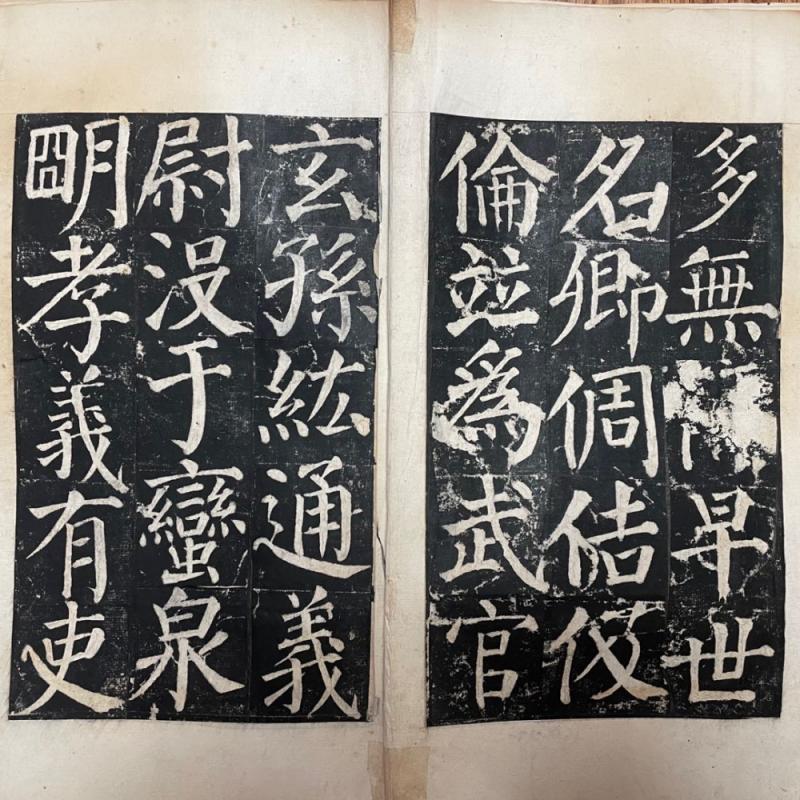 多無早世
名卿倜佶伋
倫竝爲武官
玄孫紘通義
尉没于蠻泉
朙孝義有吏